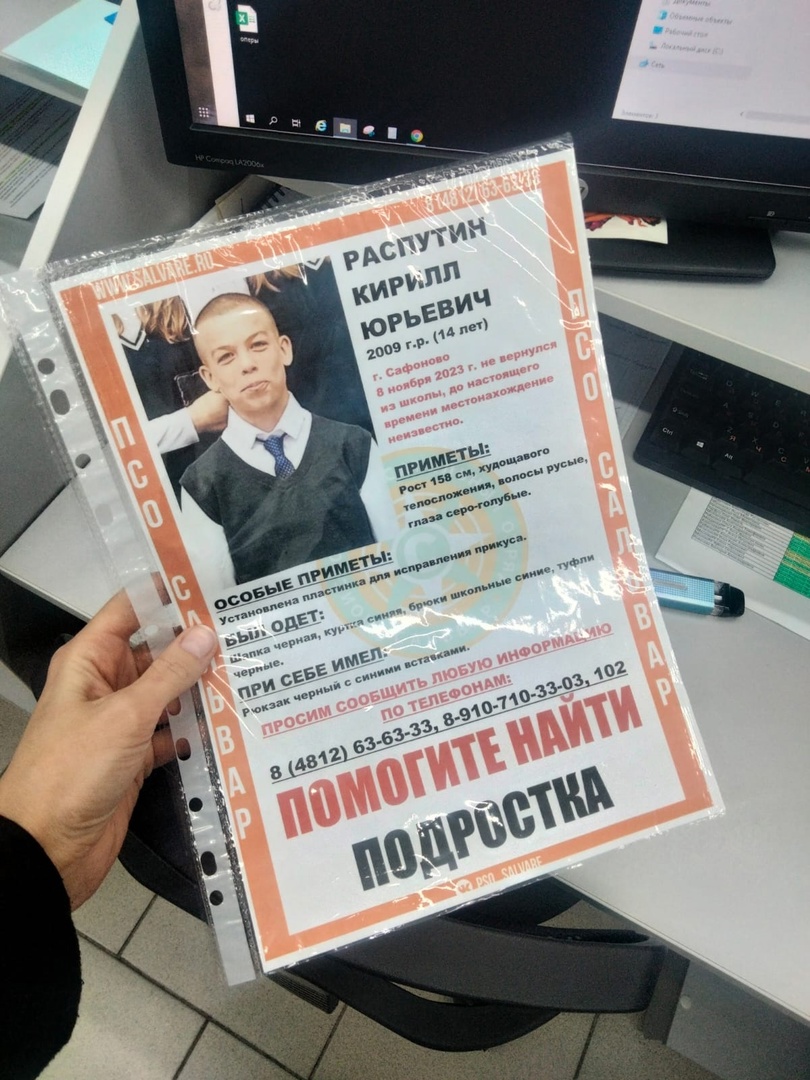 оперы
Документы
Объемные объекты
Рабочий стол
Локальный диск (C:)
Сеть
HP Compaq LA2006x
WWW.SALVARE.RU
8 (4812) 63-63-33
РАСПУТИН
КИРИЛЛ
ЮРЬЕВИЧ
2009 г.р. (14 лет)
г. Сафоново
8 ноября 2023 г. не вернулся
из школы, до настоящего
времени местонахождение
неизвестно.
ПРИМЕТЫ:
Рост 158 см, худощавого
телосложения, волосы русые,
глаза серо-голубые.
ОСОБЫЕ ПРИМЕТЫ:
Установлена пластинка для исправления прикуса.
БЫЛ ОДЕТ:
Шапка черная, куртка синяя, брюки школьные синие, туфли
черные.
ПРИ СЕБЕ ИМЕЛ:
Рюкзак черный с синими вставками.
ПРОСИМ СООБЩИТЬ ЛЮБУЮ ИНФОРМАЦИЮ
ПО ТЕЛЕФОНАМ:
8 (4812) 63-63-33, 8-910-710-33-03, 102
ПОМОГИТЕ НАЙТИ
ПОДРОСТКА
PSO_SALVARE
ПСО САЛЬВАР
ПСО САЛЬВАР
Ctrl
Alt